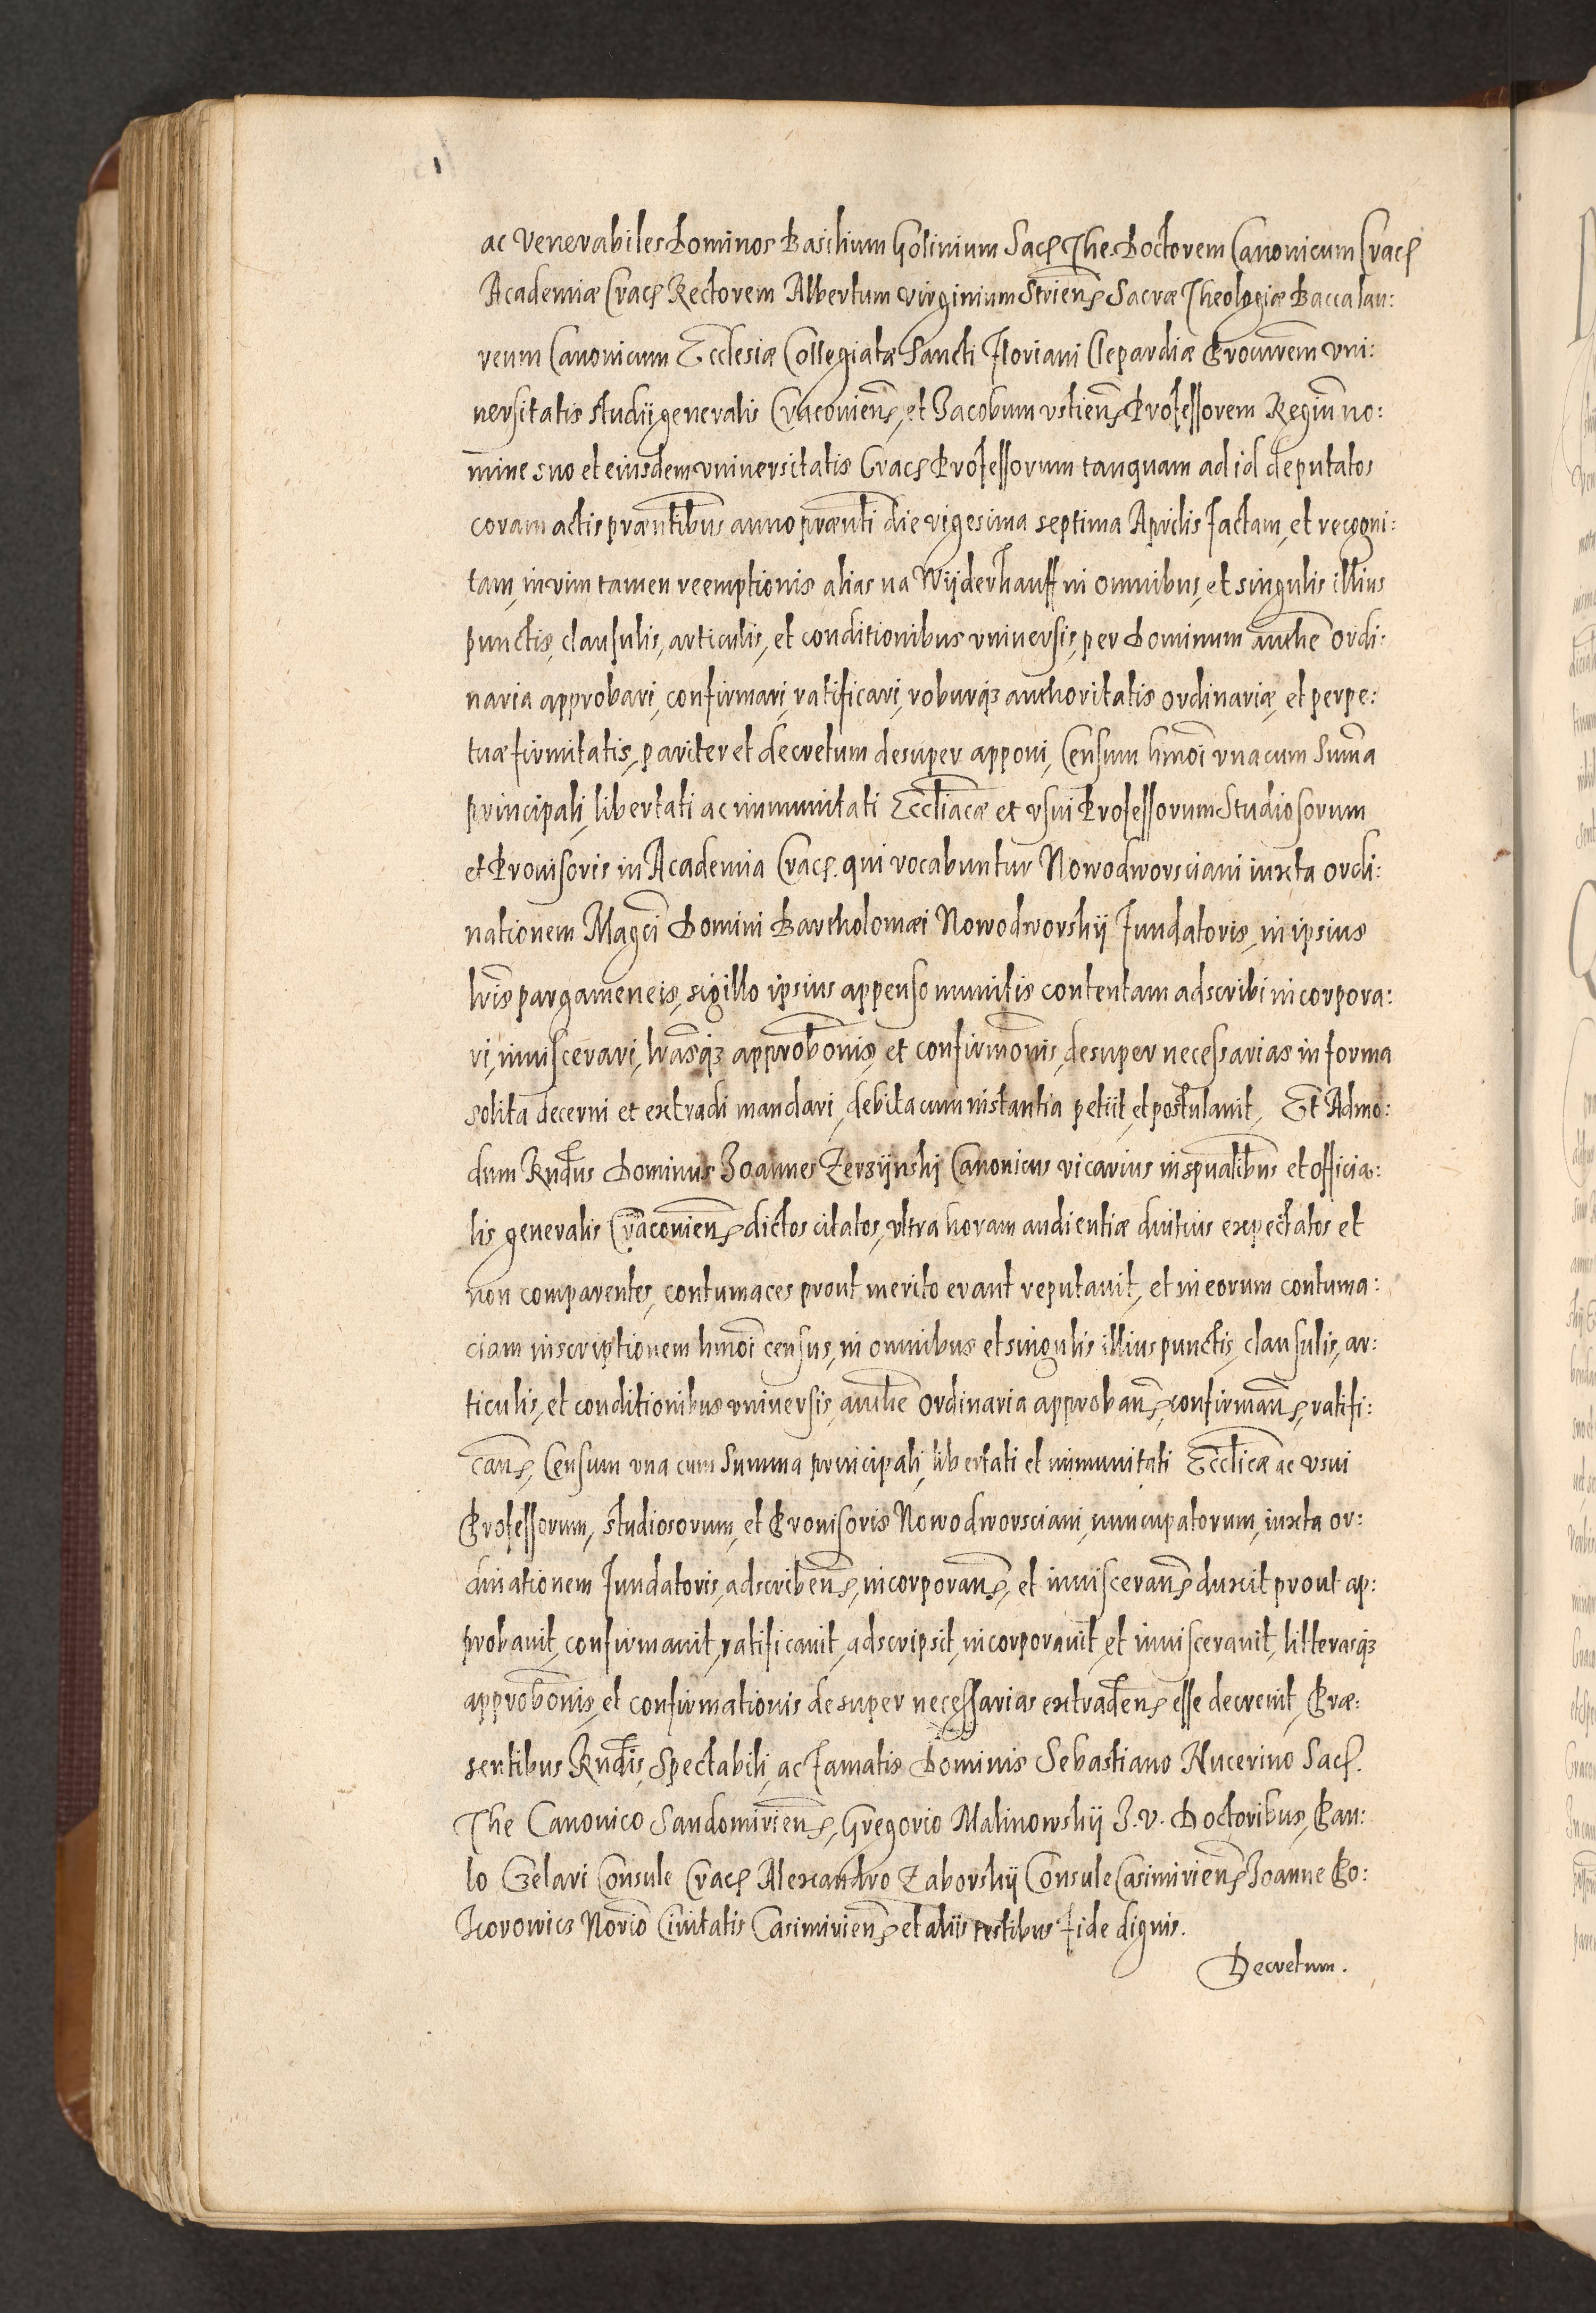 ac Venerabiles Dominos Basilium Golinium Sac The. Doctorem Canonicum Crac
Academiæ Crac Rectorem Albertum Virginium Striens Sacræ Theologiæ Baccalau:
reum Canonicum Ecclesiæ Collegiatæ Sancti Floriani Clepardiæ Procurem Vni:
uersitatis studij generalis Cracouiens, et Jacobum Vstiens Professorem Regium no:
mine suo et eiusdem vniuersitatis Crac Professorum tanquam ad id deputatos
coram actis præntibus anno prænti die vigesima septima Aprilis factam, et recogni:
tam, in vim tamen reemptionis alias na Wijderkauff in omnibus, et singulis illius
punctis, clausulis, articulis, et conditionibus vniuersis, per Dominum authe Ordi:
naria approbari, confirmari, ratificari, roburq3 authoritatis ordinariæ, et perpe:
tuæ firmitatis, pariter et decretum desuper apponi, Censum hmoi vna cum Suma
principali, libertati ac immunitati Eccliacæ et vsui Professorum Studiosorum
et Prouisoris in Academia Crac. qui vocabuntur Nowodworsciani iuxta ordi:
nationem Magci Domini Bartholomæi Nowodworskij Fundatoris, in ipsius
lris pargameneis, sigillo ipsius appenso munitis contentam adscribi incorpora:
ri, inuiscerari, lrasq3 approbonis, et confirmonis, desuper necessarias in forma
solita decerni et extradi mandari, debita cum instantia petijt, et postulauit, Et Admo:
dum Rndus Dominus Joannes Zerzijnskj Canonicus vicarius in spualibus et officia:
lis generalis Cracouiens dictos citatos, vltra horam audientiæ diutius expectatos et
non comparentes, contumaces prout merito erant reputauit, et in eorum contuma:
ciam inscriptionem hmoi census, in omnibus et singulis illius punctis, clausulis, ar:
ticulis, et conditionibus vniuersis, authe Ordinaria approbans, confirmans, ratifi:
cans, Censum vna cum Summa principali, libertati et immunitati Ecclicæ ac vsui
Professorum, studiosorum, et Prouisoris Nowodworsciani, nuncupatorum, iuxta or:
dinationem Fundatoris, adscribens, incorporans, et inuiscerans duxit prout ap:
probauit, confirmauit, ratificauit, adscripsit, incorporauit, et inuiscerauit, litterasq3
approbonis, et confirmationis desuper necessarias extradens esse decreuit, Præ:
sentibus Rndis, Spectabili, ac Famatis Dominis Sebastiano Nucerino Sac.
The Canonico Sandomiriens, Gregorio Malinowskij J. V. Doctoribus, Pau:
lo Celari Consule Crac Alexandro Zaborskij Consule Casimiriens Joanne Po:
korowicz Norio Ciuitatis Casimiriens et aliis testibus fide dignis.
Decretum.